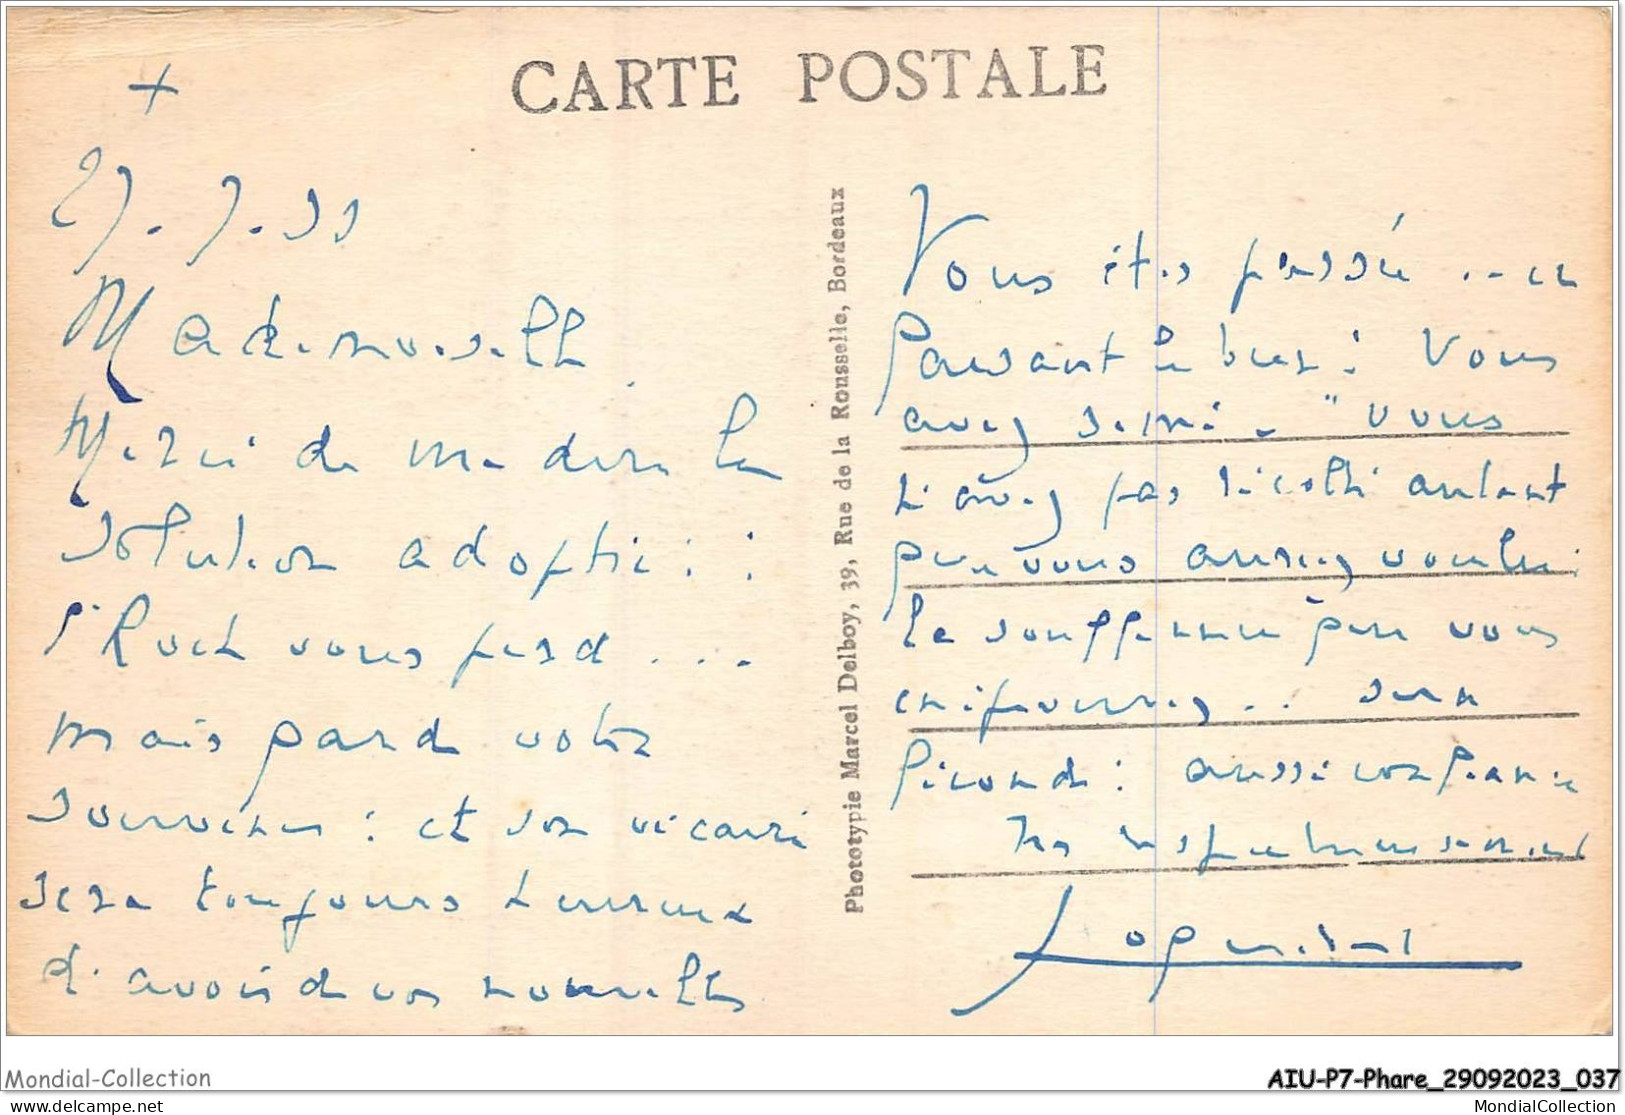 CARTE POSTALE
+
27.7.33
Mademoiselle
Merci de me dire la
solution adoptée :
l'Roch vous perd ...
mais garde votre
souvenir : et son vicaire
sera toujours heureux
d'avoir de vos nouvelles
Phototypie Marcel Delboy, 39, Rue de la Rousselle, Bordeaux
Vous êtes passée ... en
faisant le bien : Vous
avez semé - " vous
n'avez pas récolté autant
que vous auriez voulu :
la souffrance que vous
en éprouverez .. sera
féconde : aussi confiance
Très respectueusement
Mondial-Collection
www.delcampe.net
AIU-P7-Phare_29092023_037
MondialCollection